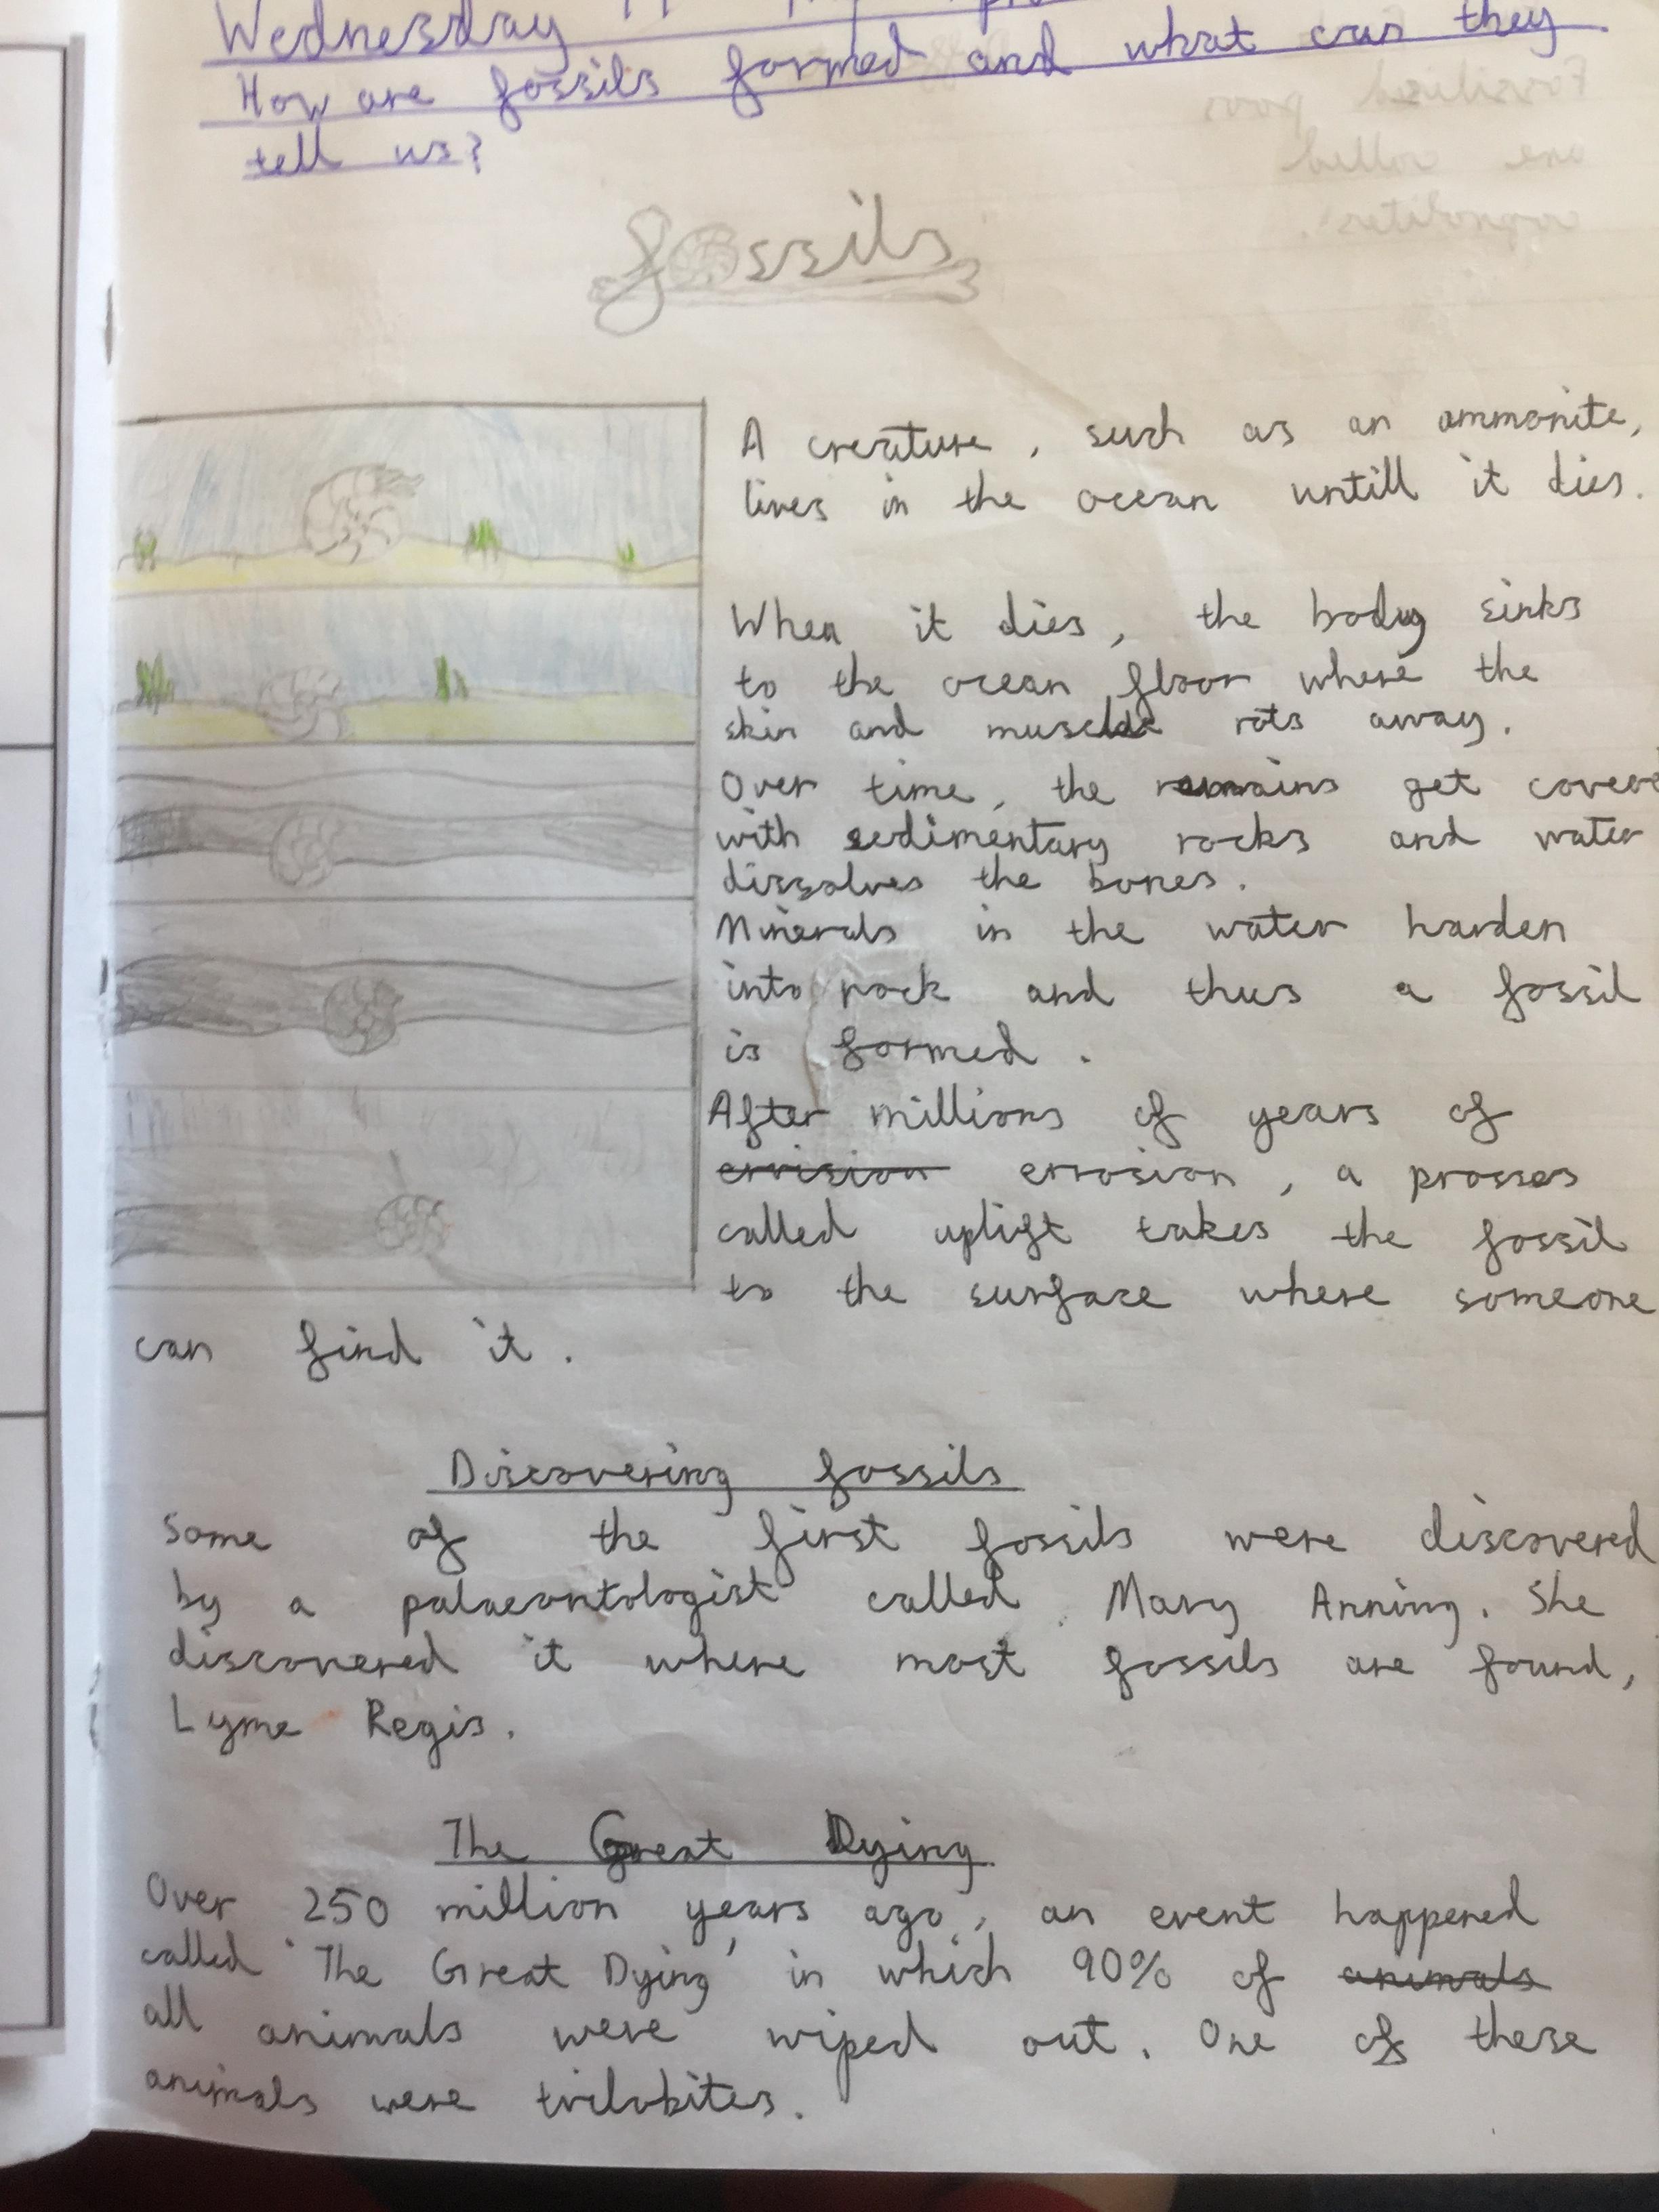 Wednesday
How are fossils formed and what can they
tell us?
fossils
A creature, such as an ammonite,
lives in the ocean untill it dies.
When it dies, the body sinks
to the ocean floor where the
skin and muscle rots away.
Over time, the remains get cover
with sedimentary rocks and water
dissolves the bones.
Minerals in the water harden
into rock and thus a fossil
is formed.
After millions of years of
ervision errosion, a prosses
called uplift takes the fossil
to the surface where someone
can find it.
Discovering fossils
Some of the first fossils were discovered
by a palaeontologist called Mary Anning. She
discovered it where most fossils are found,
Lyme Regis.
The Great Dying
Over 250 million years ago, an event happened
called 'The Great Dying' in which 90% of animals
all animals were wiped out. One of these
animals were trilobites.